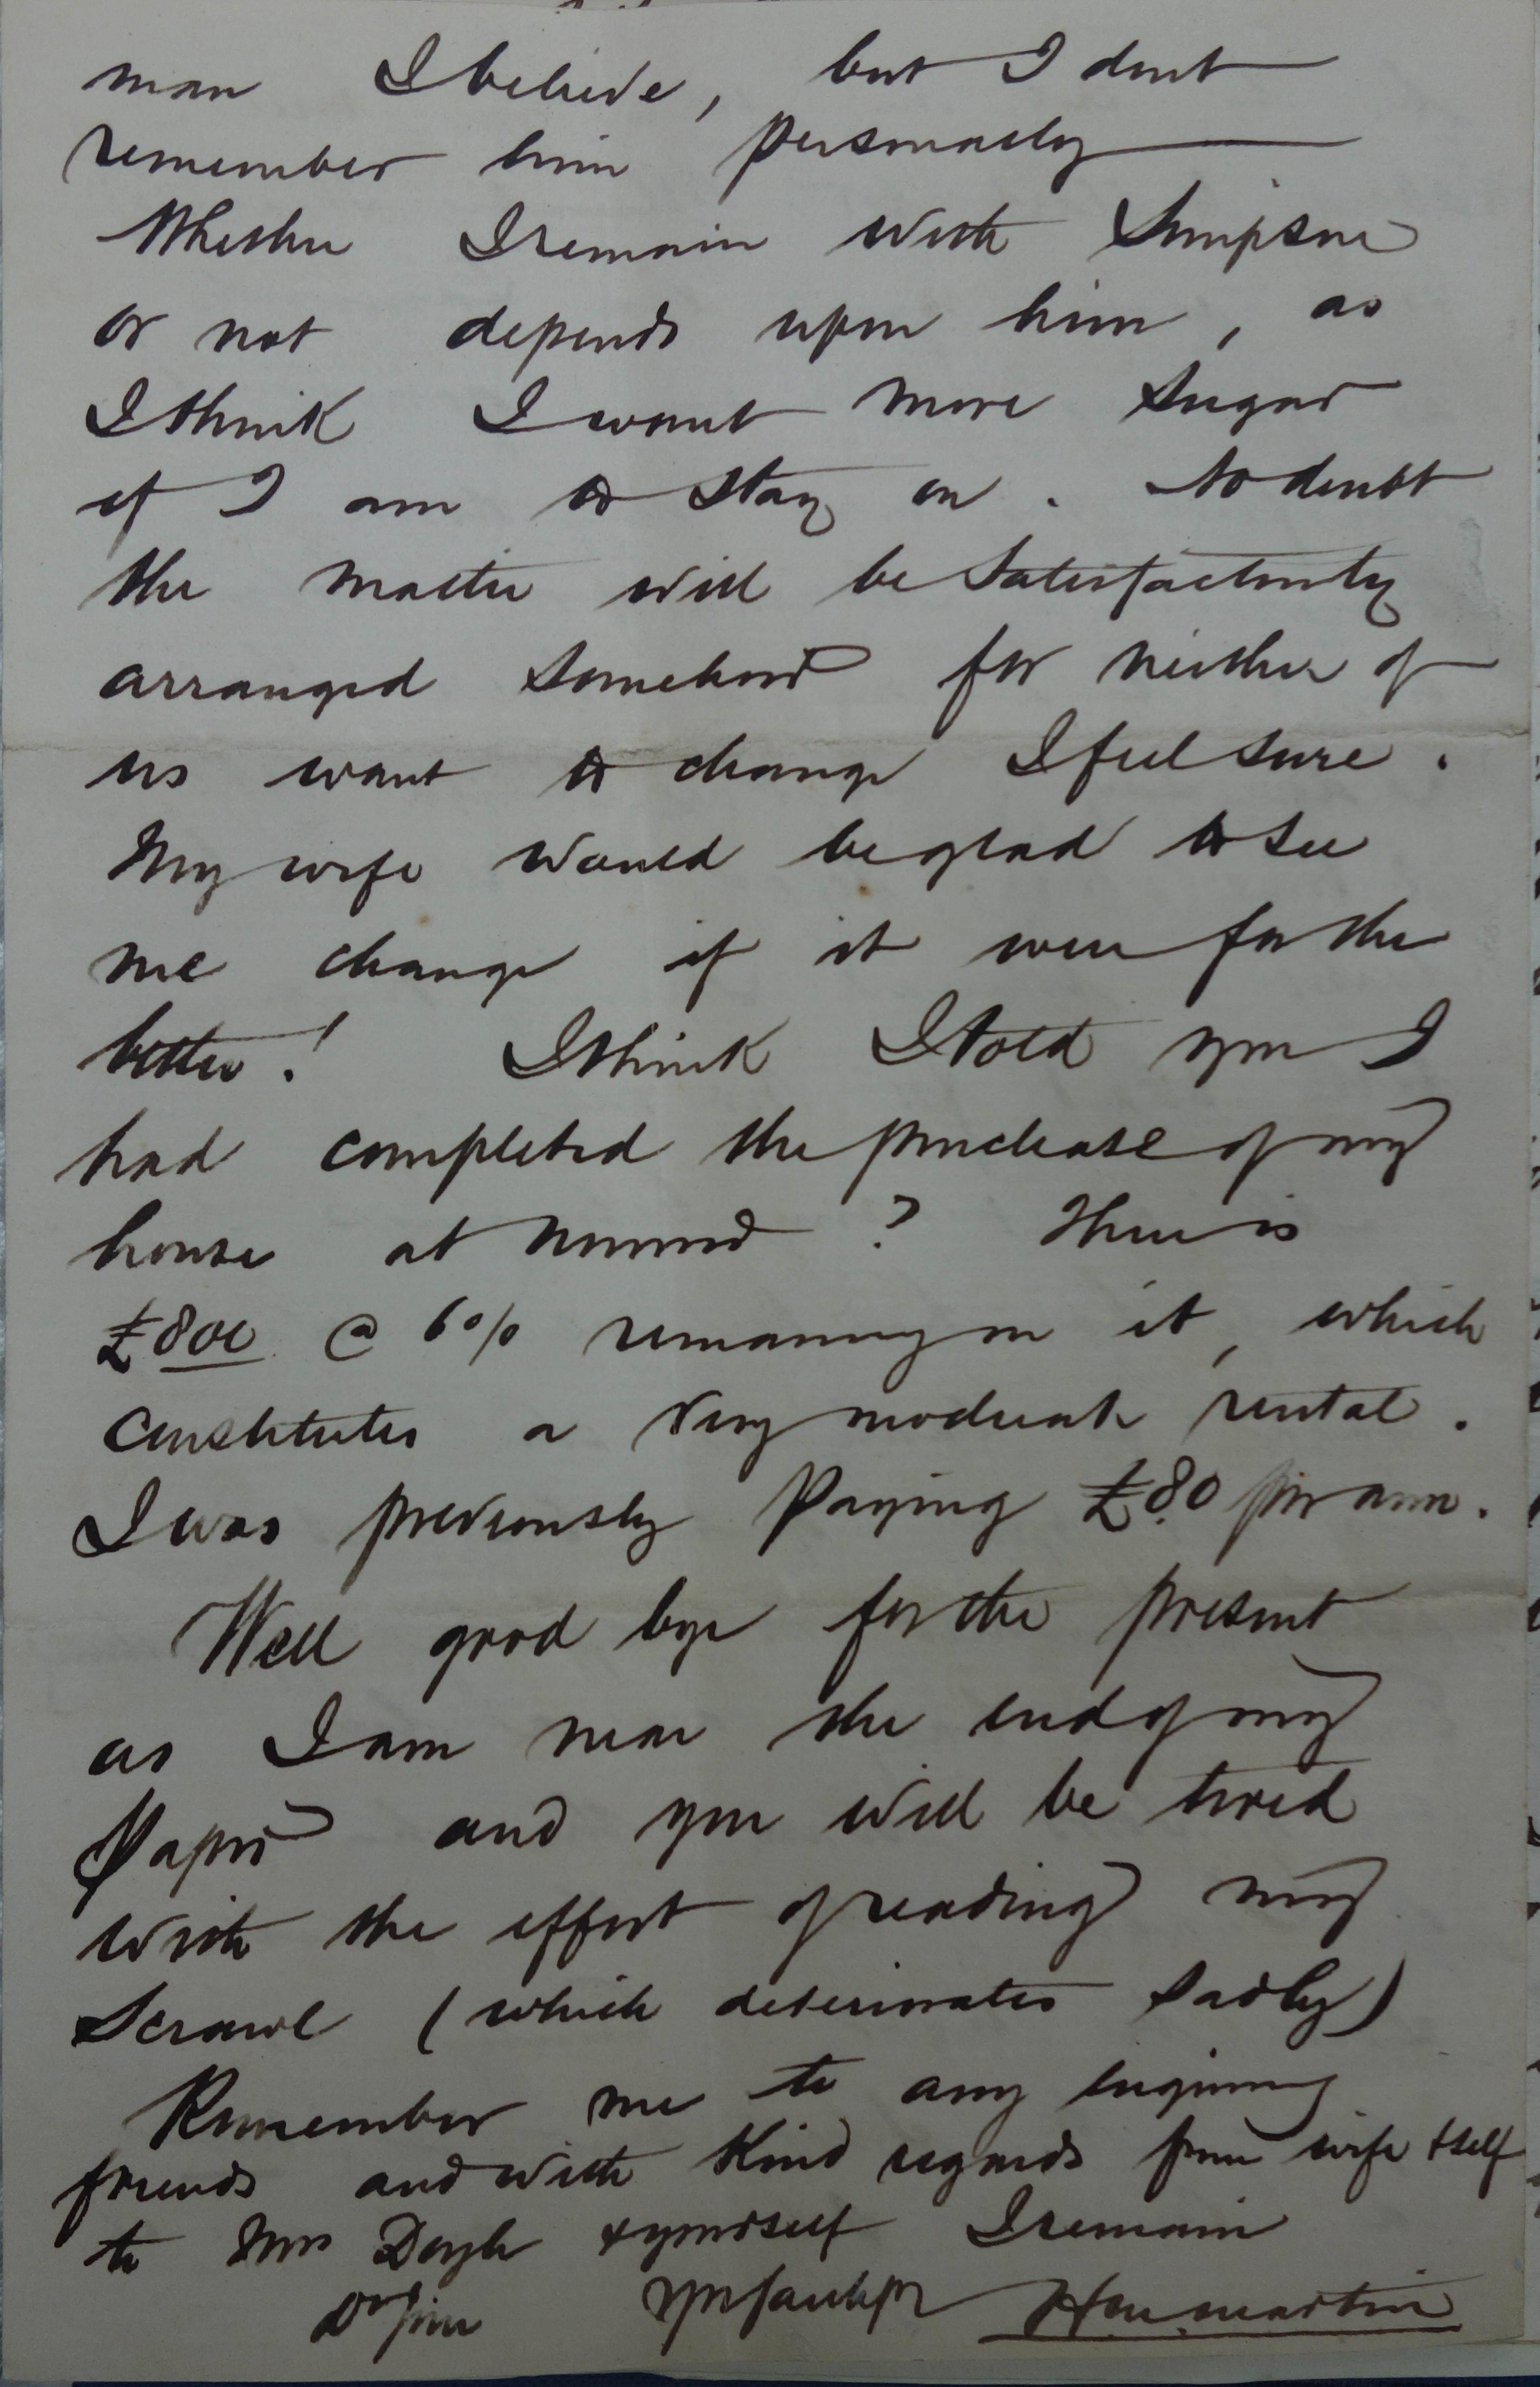 man I believe, but I dont
remember him personally
Whether I remain with Simpson
or not depends upon him, as
I think I want more sugar
if I am to stay on. No doubt
the matter will be satisfactorily
arranged somehow for neither of
us want to change I feel sure.
My wife would be glad to see
me change if it were for the
better! I think I told you I
had completed the purchase of my
house at Norwood? There is
£800 @ 6% remaining on it, which
constitutes a very moderate rental.
I was previously paying £80 per ann.
Well good bye for the present
as I am near the end of my
Paper and you will be tired
with the effort of reading my
Scrawl (which deteriorates sadly)
Remember me to any enquiring
friends and with kind regards from wife & self
to Mrs Doyle & yourself I remain
Dr Jim Yrs faithfy